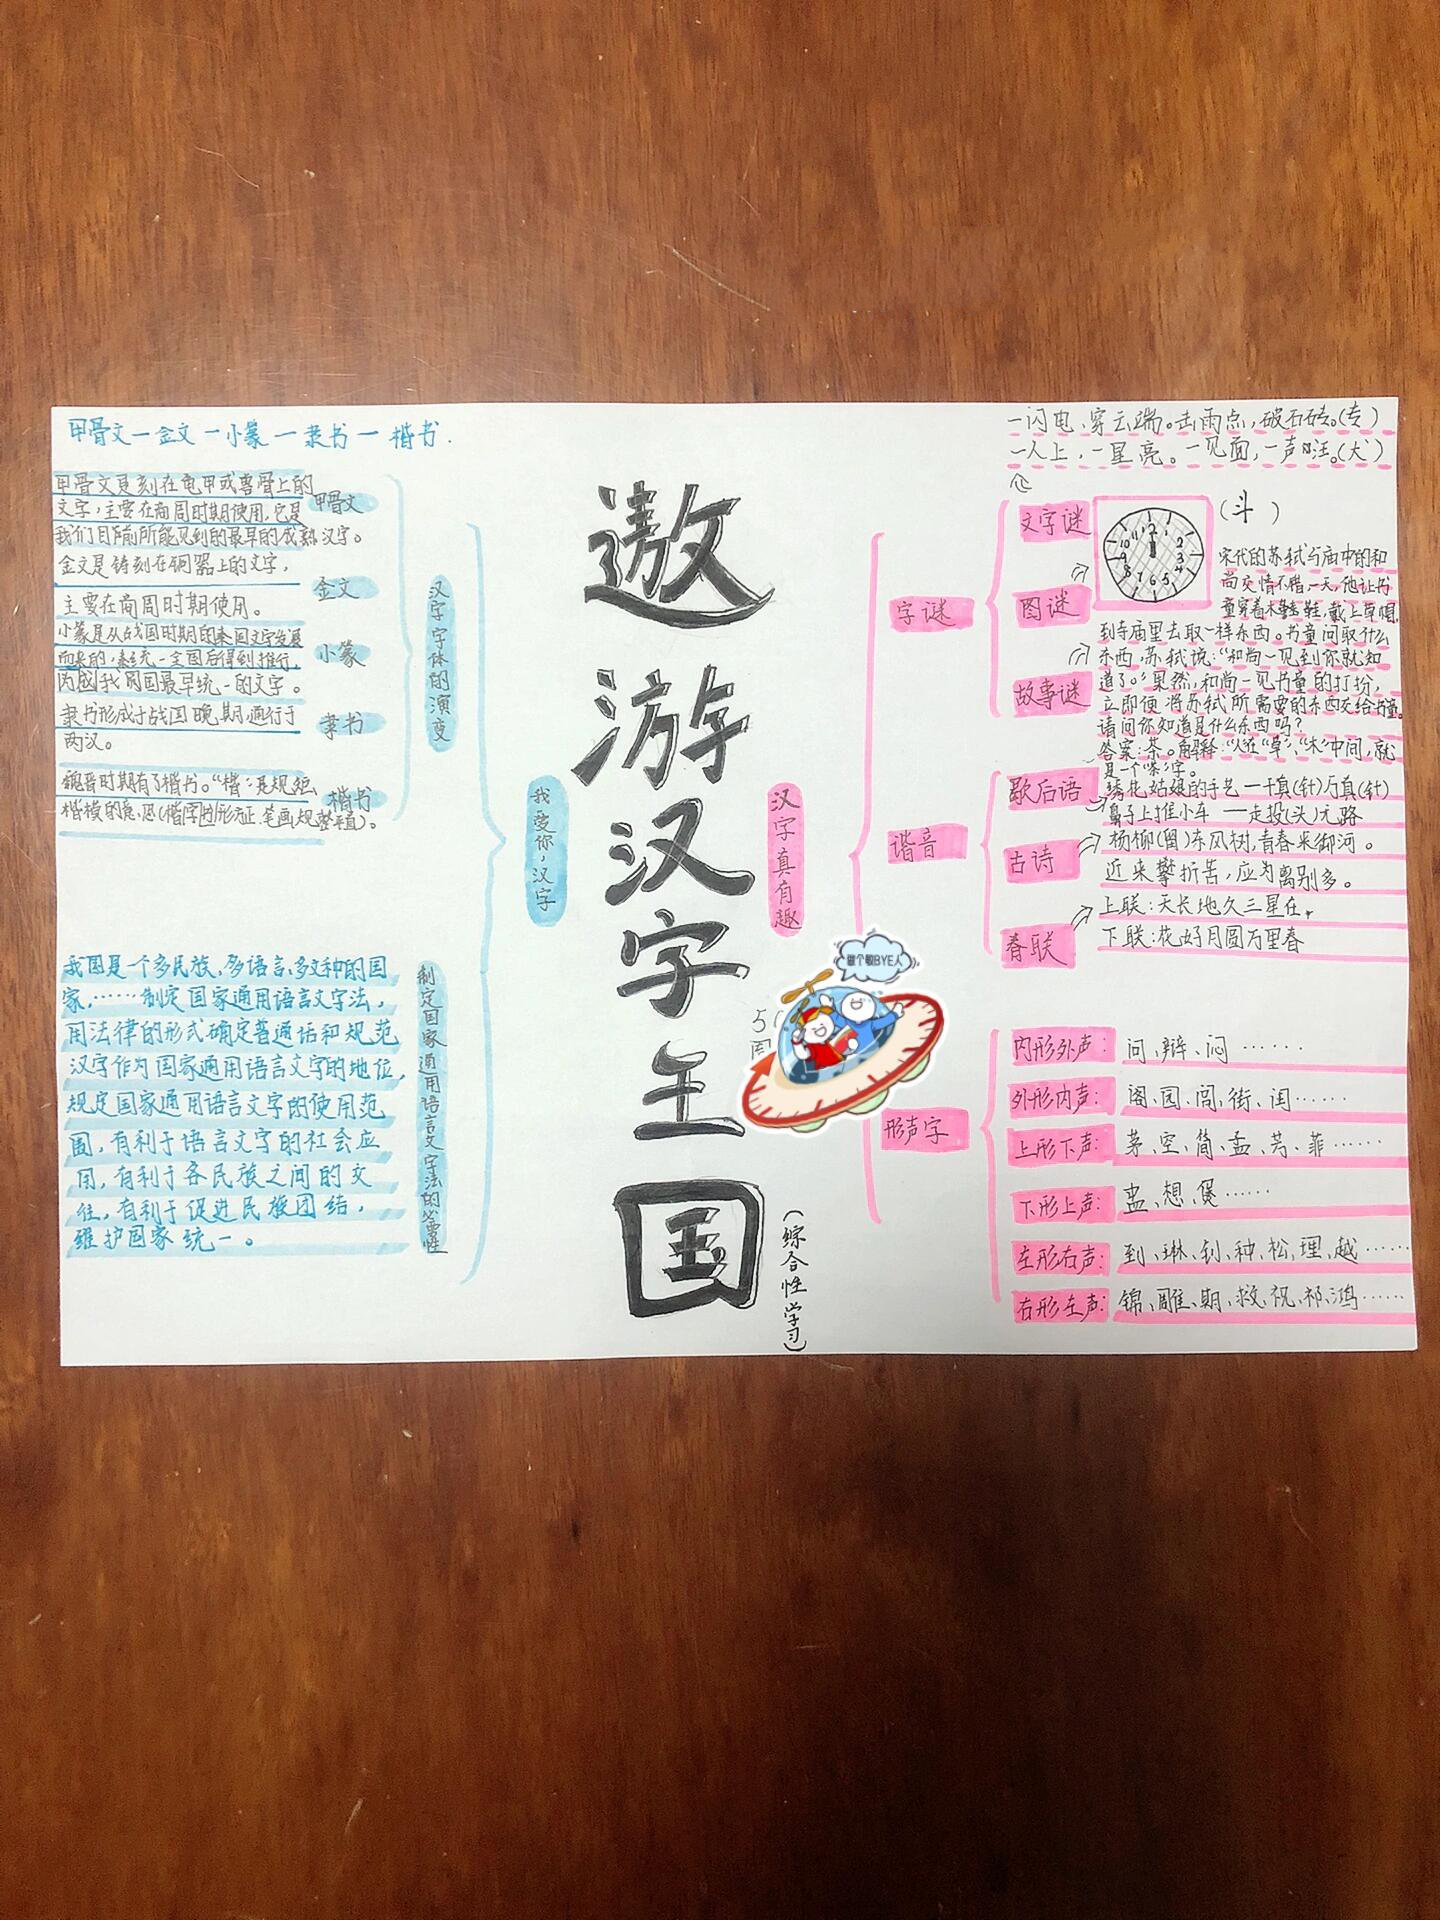 甲骨文—金文—小篆—隶书—楷书.
甲骨文是刻在龟甲或兽骨上的
文字,主要在商周时期使用,它是
我们目前所能见到的最早的成熟汉字。
甲骨文
金文是铸刻在铜器上的文字,
主要在商周时期使用。
金文
小篆是从战国时期的秦国文字发展
而来的,秦统一全国后得到推行,
我国最早统一的文字。
小篆
隶书形成于战国晚期,通行于
两汉。
隶书
魏晋时期有了楷书。“楷”是规矩
楷模的意思(楷字的形方正,笔画规整平直)。
楷书
汉字字体的演变
我国是一个多民族,多语言,多文种的国
家,……制定国家通用语言文字法,
用法律的形式确定普通话和规范
汉字作为国家通用语言文字的地位,
规定国家通用语言文字的使用范
围,有利于语言文字的社会应
用,有利于各民族之间的交
往,有利于促进民族团结,
维护国家统一。
制定国家通用语言文字法的必要性
我爱你,汉字
遨游汉字王国
(综合性学习)
汉字真有趣
做个敏BYE人
字谜
文字谜
一闪电,穿云端。击雨点,破石砖。(专)
一人上,一星亮。一见面,一声汪。(犬)
图谜
12 1 2 3 4 5 6 7 8 9 10 11
(斗)
故事谜
宋代的苏轼与庙中的和
尚交情不错,一天,他让书
童穿着木鞋,戴上草帽,
到寺庙里去取一样东西。书童问取什么
东西,苏轼说:“和尚一见到你就知
道了。”果然,和尚一见书童的打扮,
立即便将苏轼所需要的东西交给书童。
请问你知道是什么东西吗?
答案:茶。解释:“人”在“草”、“木”中间,就
是一个“茶”字。
谐音
歇后语
绣花姑娘的手艺—千真(针)万真(针)
鼻子上推小车——走投(头)无路
古诗
杨柳(留)东风树,青春夹御河。
近来攀折苦,应为离别多。
春联
上联:天长地久三星在,
下联:花好月圆万里春
形声字
内形外声:问、辩、闷……
外形内声:阁、园、阎、街、闺……
上形下声:茅、空、简、孟、芳、菲……
下形上声:盂、想、煲……
左形右声:到、琳、钊、种、松、理、越……
右形左声:锦、雕、期、救、祝、祁、鸿……